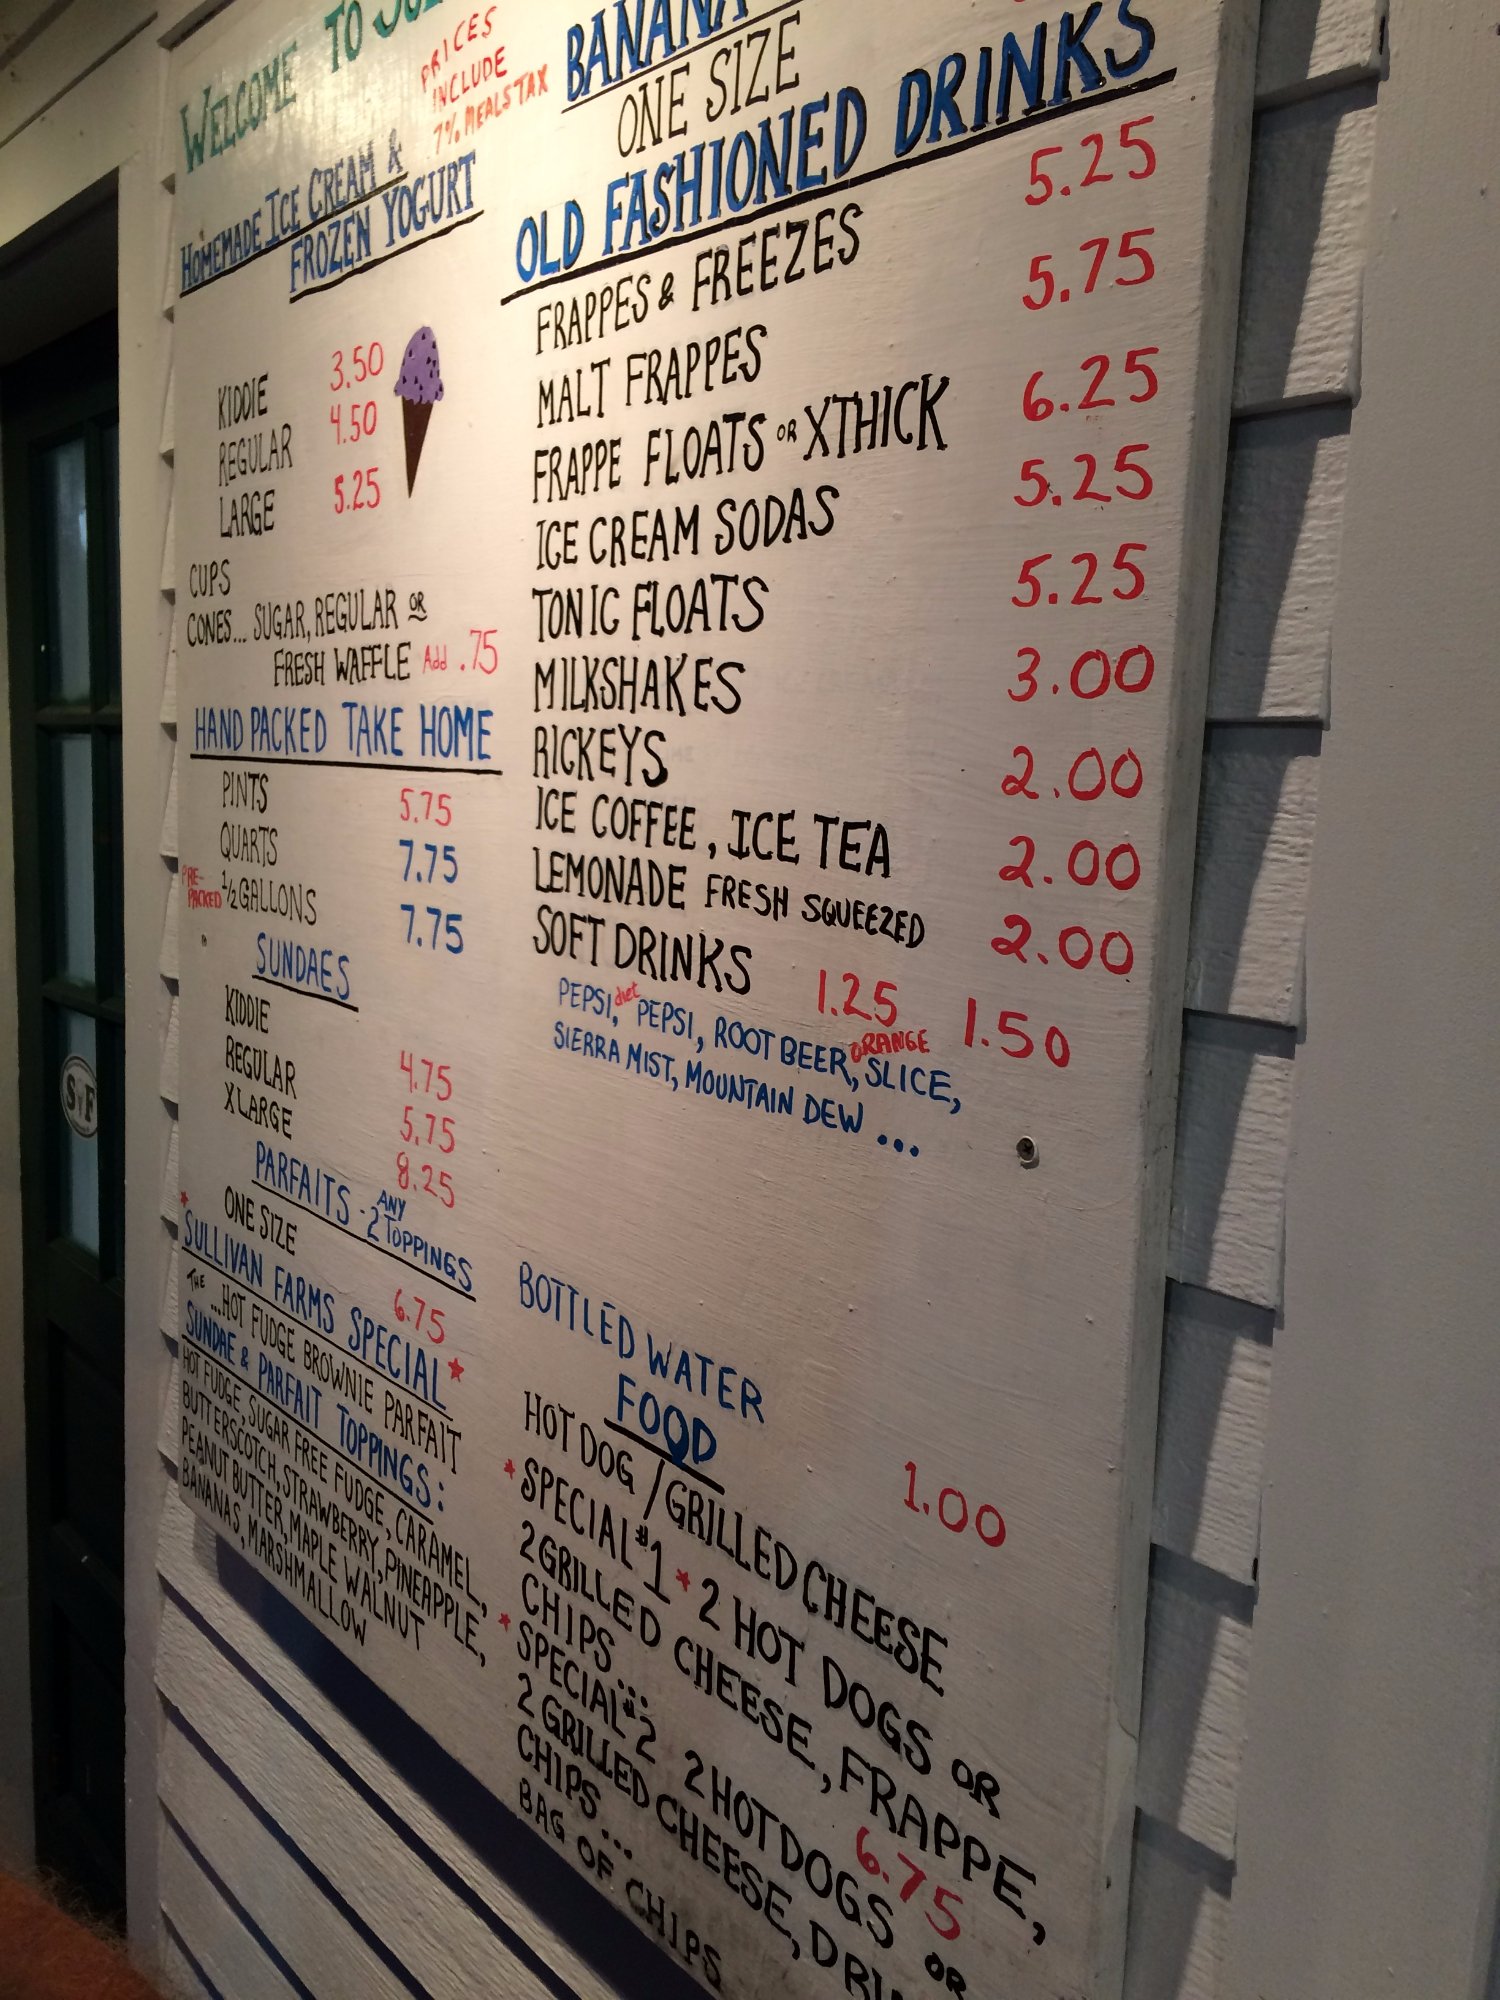 WELCOME TO
PRICES
INCLUDE
7% MEALS TAX
HOMEMADE ICE CREAM &
FROZEN YOGURT
KIDDIE 3.50
REGULAR 4.50
LARGE 5.25
CUPS
CONES... SUGAR, REGULAR OR
FRESH WAFFLE Add .75
HAND PACKED TAKE HOME
PINTS 5.75
QUARTS 7.75
PRE-PACKED 1/2 GALLONS 7.75
SUNDAES
KIDDIE 4.75
REGULAR 5.75
XLARGE 8.25
PARFAITS - ANY 2 TOPPINGS
ONE SIZE 6.75
* SULLIVAN FARMS SPECIAL *
THE ...HOT FUDGE BROWNIE PARFAIT
SUNDAE & PARFAIT TOPPINGS:
HOT FUDGE, SUGAR FREE FUDGE, CARAMEL,
BUTTERSCOTCH, STRAWBERRY, PINEAPPLE,
PEANUT BUTTER, MAPLE WALNUT
BANANAS, MARSHMALLOW
BANANA
ONE SIZE
OLD FASHIONED DRINKS
FRAPPES & FREEZES 5.25
MALT FRAPPES 5.75
FRAPPE FLOATS OR XTHICK 6.25
ICE CREAM SODAS 5.25
TONIC FLOATS 5.25
MILKSHAKES 3.00
RICKEYS 2.00
ICE COFFEE, ICE TEA 2.00
LEMONADE FRESH SQUEEZED 2.00
SOFT DRINKS 1.25 1.50
PEPSI, diet PEPSI, ROOT BEER, ORANGE SLICE,
SIERRA MIST, MOUNTAIN DEW ...
BOTTLED WATER 1.00
FOOD
HOT DOG / GRILLED CHEESE
* SPECIAL #1 * 2 HOT DOGS OR
2 GRILLED CHEESE, FRAPPE,
CHIPS... 6.75
* SPECIAL #2 2 HOT DOGS OR
2 GRILLED CHEESE,
CHIPS...
BAG OF CHIPS
SF